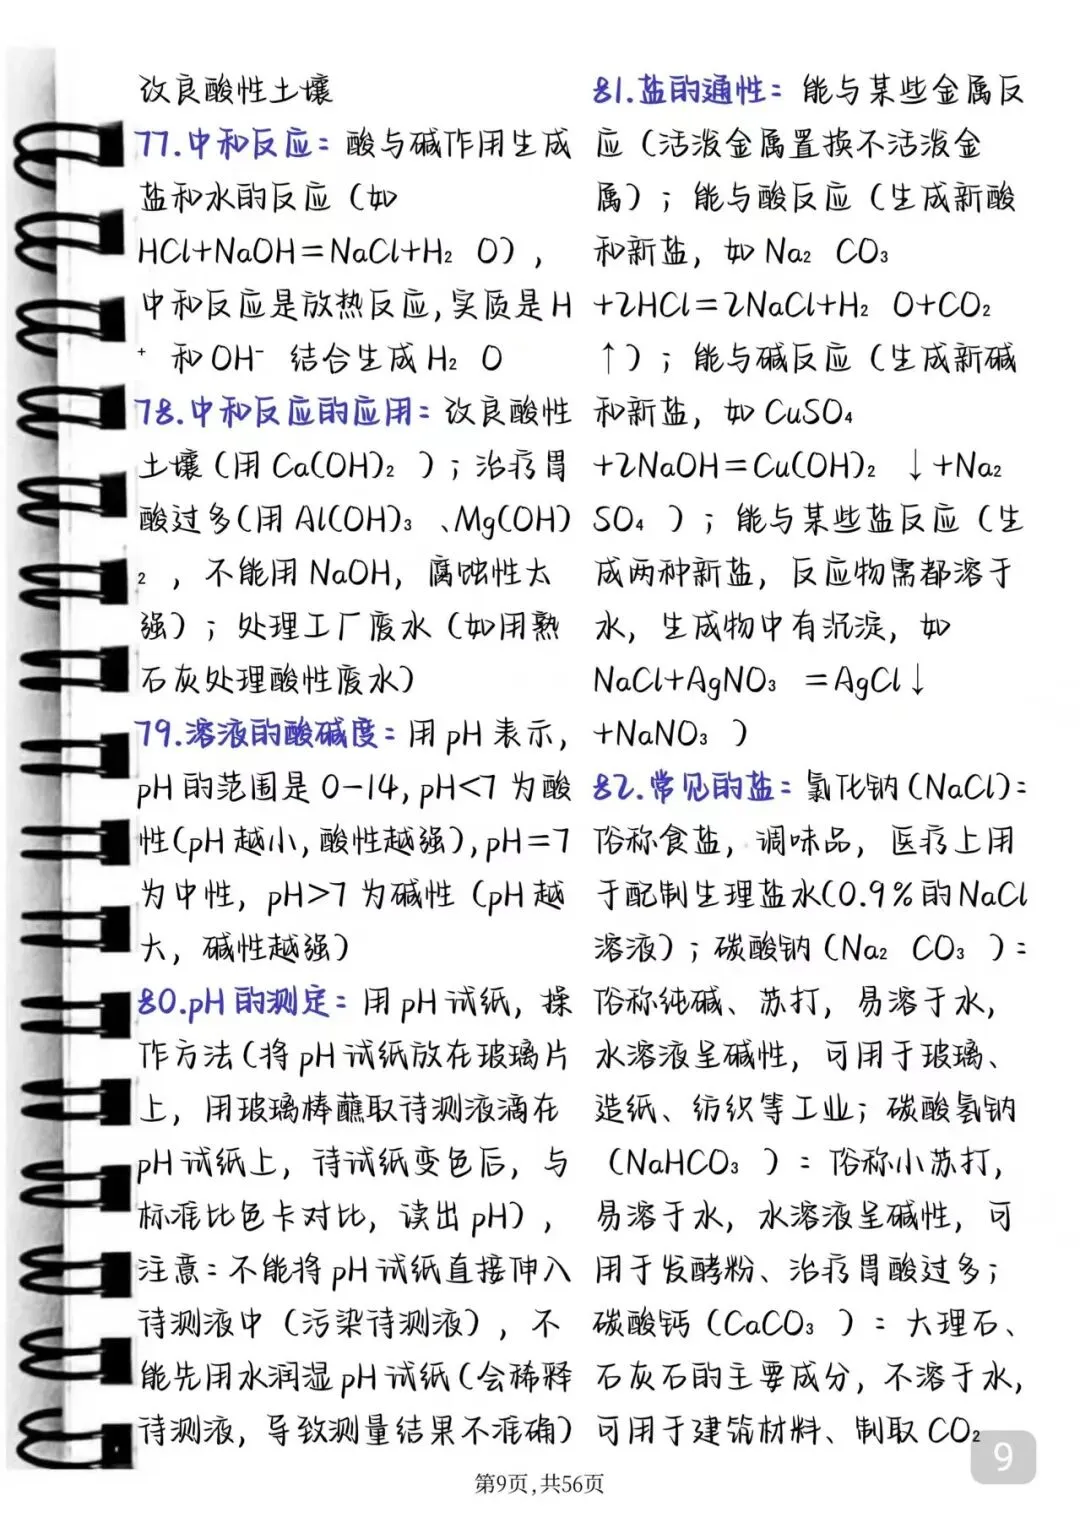 改良酸性土壤
77.中和反应：酸与碱作用生成
盐和水的反应（如
HCl+NaOH=NaCl+H₂ O），
中和反应是放热反应,实质是H
⁺ 和OH⁻ 结合生成H₂ O
78.中和反应的应用：改良酸性
土壤（用Ca(OH)₂ ）；治疗胃
酸过多(用Al(OH)₃ 、Mg(OH)
₂ ，不能用NaOH，腐蚀性太
强）；处理工厂废水（如用熟
石灰处理酸性废水）
79.溶液的酸碱度：用pH表示，
pH的范围是0-14,pH<7为酸
性(pH越小,酸性越强),pH=7
为中性，pH>7为碱性（pH越
大，碱性越强）
80.pH的测定：用pH试纸，操
作方法（将pH试纸放在玻璃片
上，用玻璃棒蘸取待测液滴在
pH试纸上，待试纸变色后，与
标准比色卡对比，读出pH），
注意：不能将pH试纸直接伸入
待测液中（污染待测液），不
能先用水润湿pH试纸（会稀释
待测液，导致测量结果不准确）
81.盐的通性：能与某些金属反
应（活泼金属置换不活泼金
属）；能与酸反应（生成新酸
和新盐，如Na₂ CO₃
+2HCl=2NaCl+H₂ O+CO₂
↑）；能与碱反应（生成新碱
和新盐，如CuSO₄
+2NaOH=Cu(OH)₂ ↓+Na₂
SO₄ ）；能与某些盐反应（生
成两种新盐，反应物需都溶于
水，生成物中有沉淀，如
NaCl+AgNO₃ =AgCl↓
+NaNO₃ ）
82.常见的盐：氯化钠(NaCl)：
俗称食盐，调味品，医疗上用
于配制生理盐水(0.9%的NaCl
溶液）；碳酸钠（Na₂ CO₃ ）：
俗称纯碱、苏打，易溶于水，
水溶液呈碱性，可用于玻璃、
造纸、纺织等工业；碳酸氢钠
（NaHCO₃ ）：俗称小苏打，
易溶于水，水溶液呈碱性，可
用于发酵粉、治疗胃酸过多；
碳酸钙（CaCO₃ ）：大理石、
石灰石的主要成分，不溶于水，
可用于建筑材料、制取CO₂
9
第9页,共56页